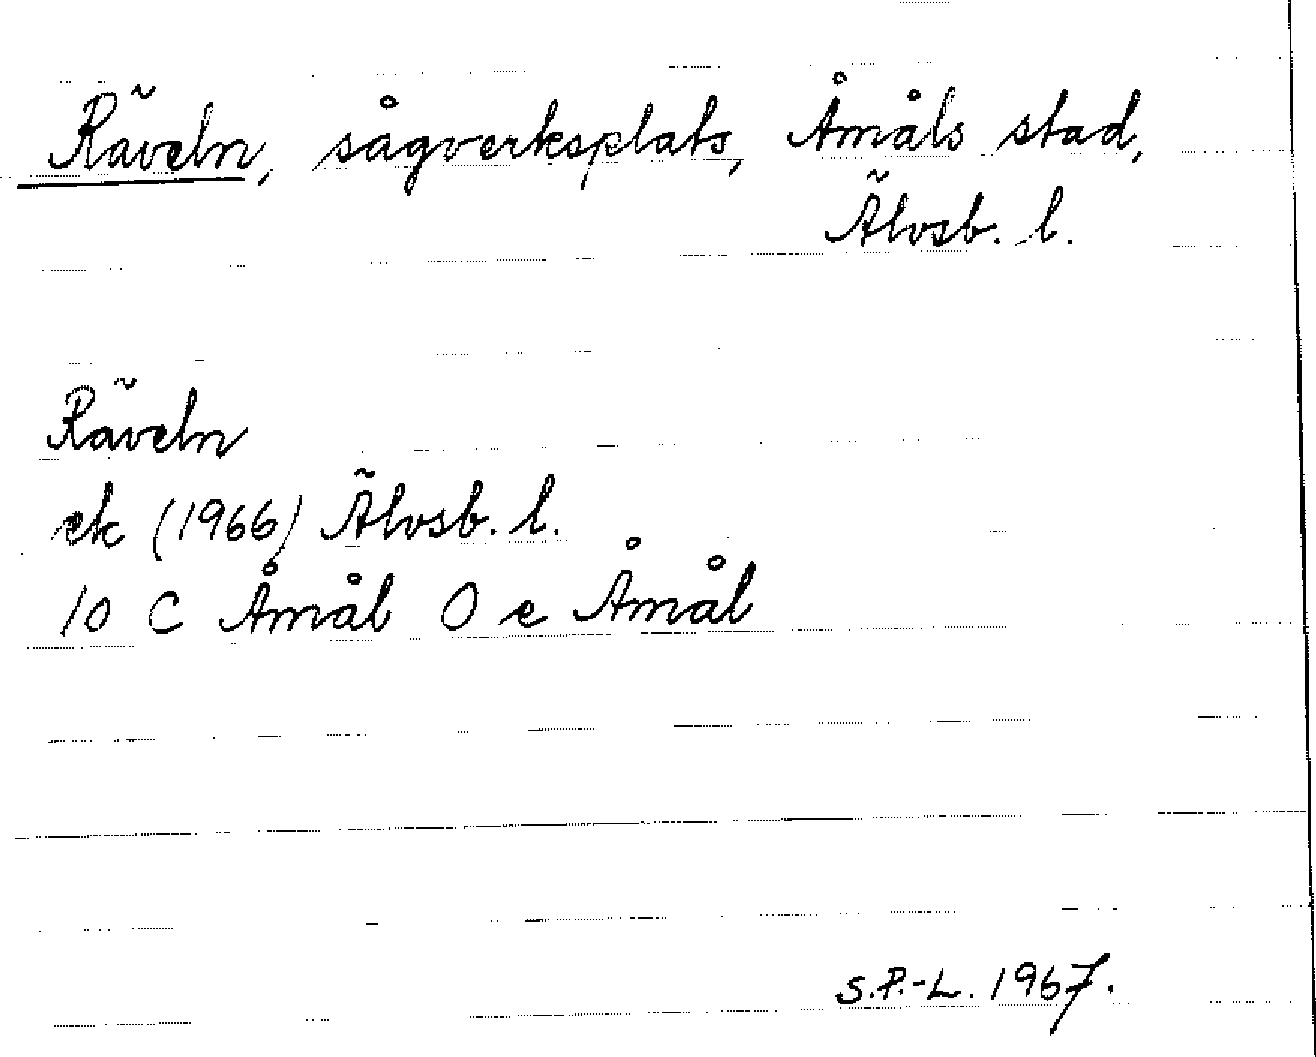 Räveln, sågverksplats, Åmåls stad,
Älvsb. l.
Räveln
ek (1966) Älvsb. l.
10 C Åmål O e Åmål
S.P.-L. 1967.